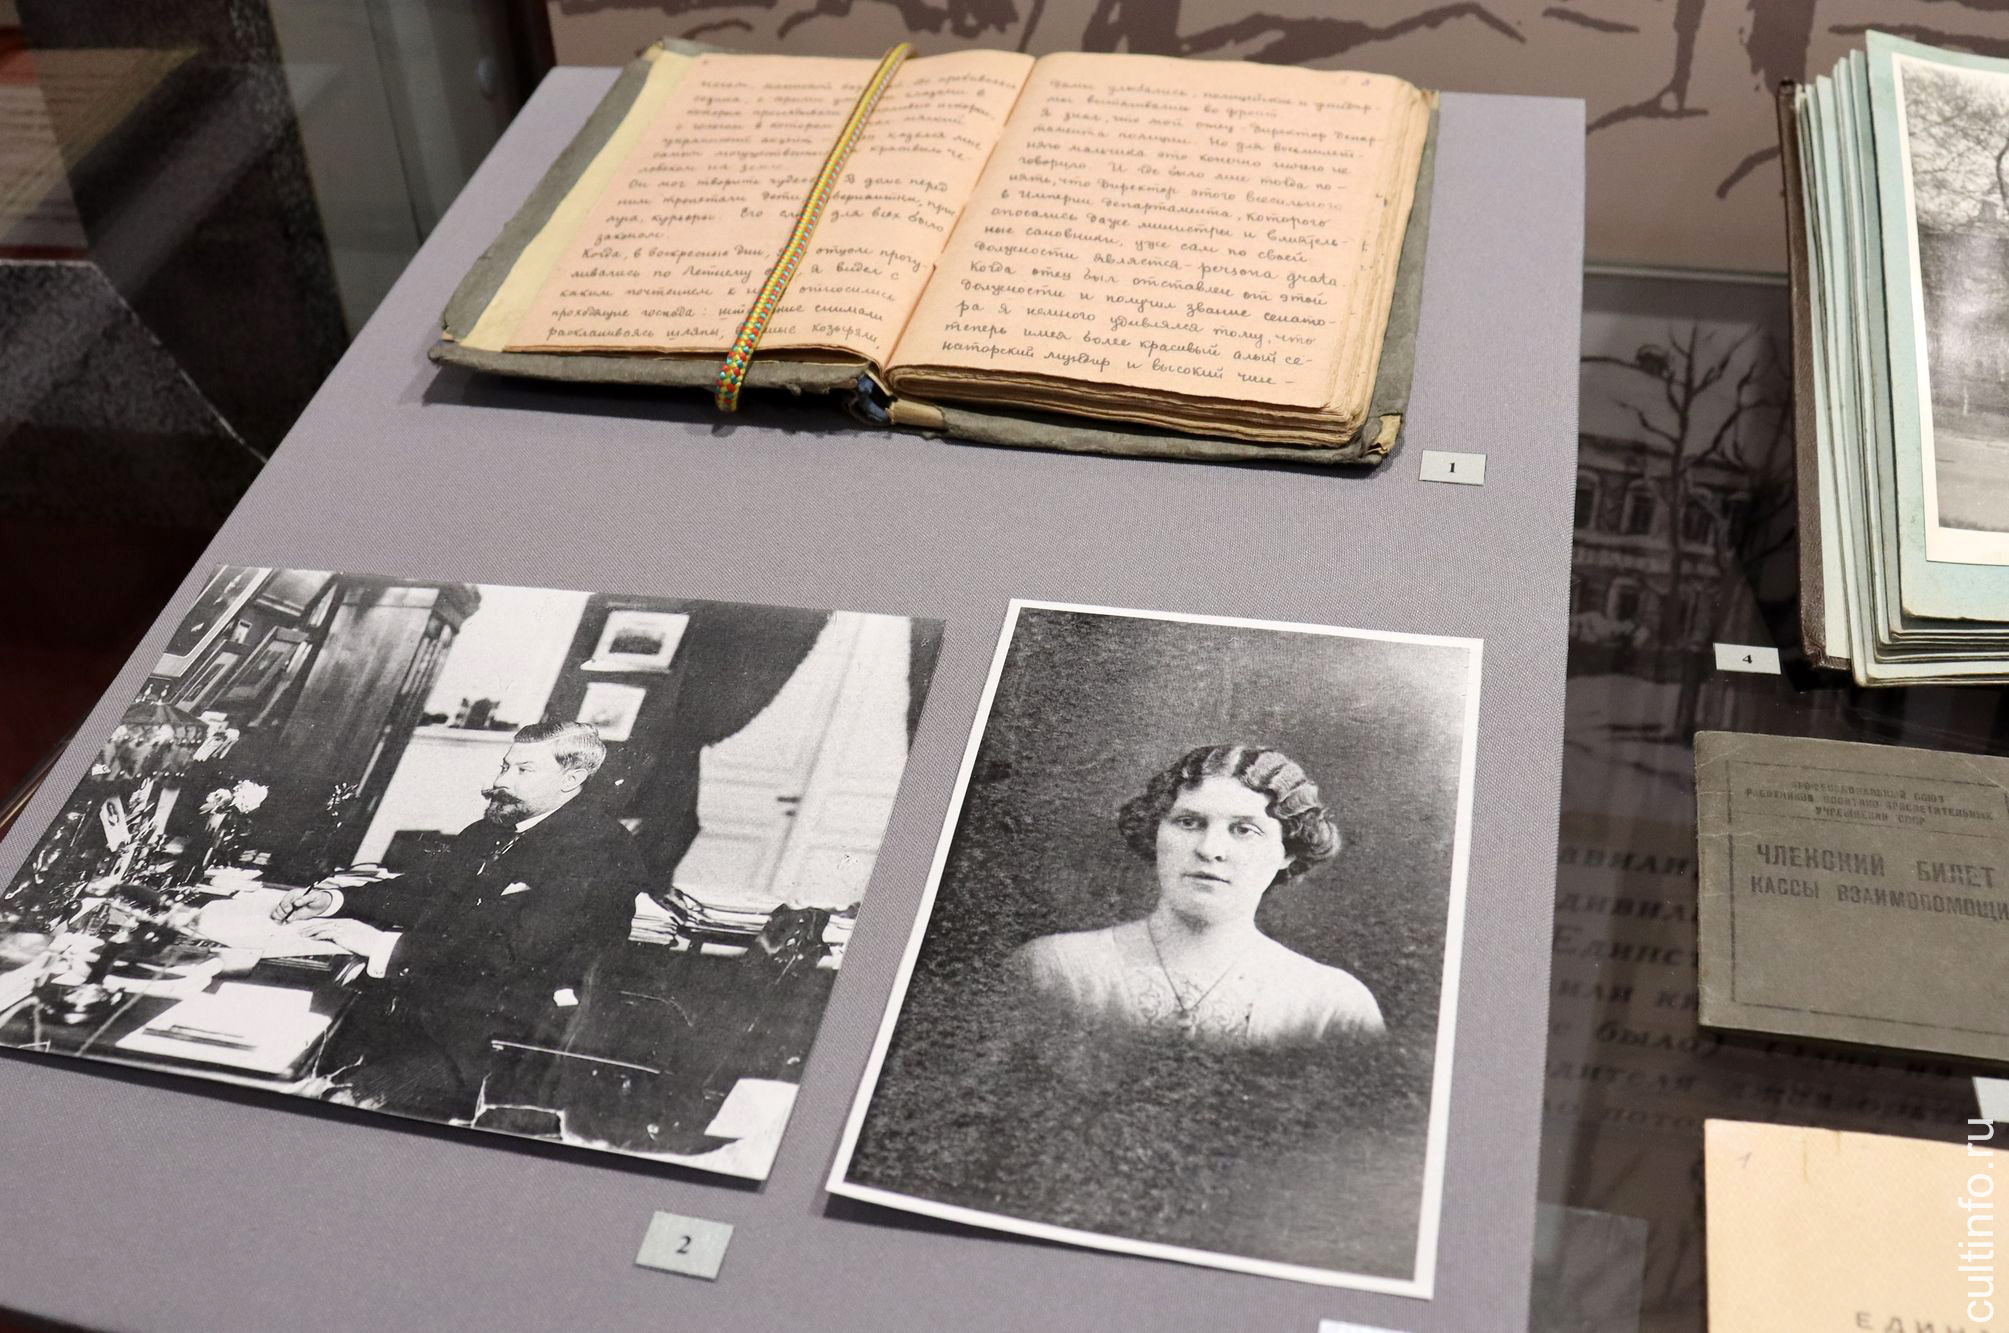 с тремя
в котором
украинский акцент
самым могущественным и красивым че-
ловеком на земле.
Он мог творить чудеса. В доме перед
ним трепетали дети,
курьеры. Его для всех было
законом.
Когда, в воскресные дни, отцом прогу-
ливались по Летнему я видел с
каким почтением к относились
проходящие господа: снимали
раскланиваясь шляпы, козыряли,
Дамы улыбались, полицейские и
вытягивались во фронт
Я знал, что мой отец - директор Депар-
тамента полиции. Но для восьмилет-
него мальчика это конечно ничего не
говорило. И где было мне тогда по-
нять, что Директор этого всесильного
в Империи Департамента, которого
опасались даже министры и влиятель-
ные сановники, уже сам по своей
должности является - persona grata.
Когда отец был отставлен от этой
должности и получил звание сенато-
ра я немного удивлялся тому, что
теперь имея более красивый алый се-
наторский мундир и высокий чин -
1
4
2
ПРОФЕССИОНАЛЬНЫЙ СОЮЗ
РАБОТНИКОВ ПОЛИТИКО ПРОСВЕТИТЕЛЬНЫХ
УЧРЕЖДЕНИЙ СССР
ЧЛЕНСКИЙ БИЛЕТ
КАССЫ ВЗАИМОПОМОЩИ
1
ЕДИН
cultinfo.ru